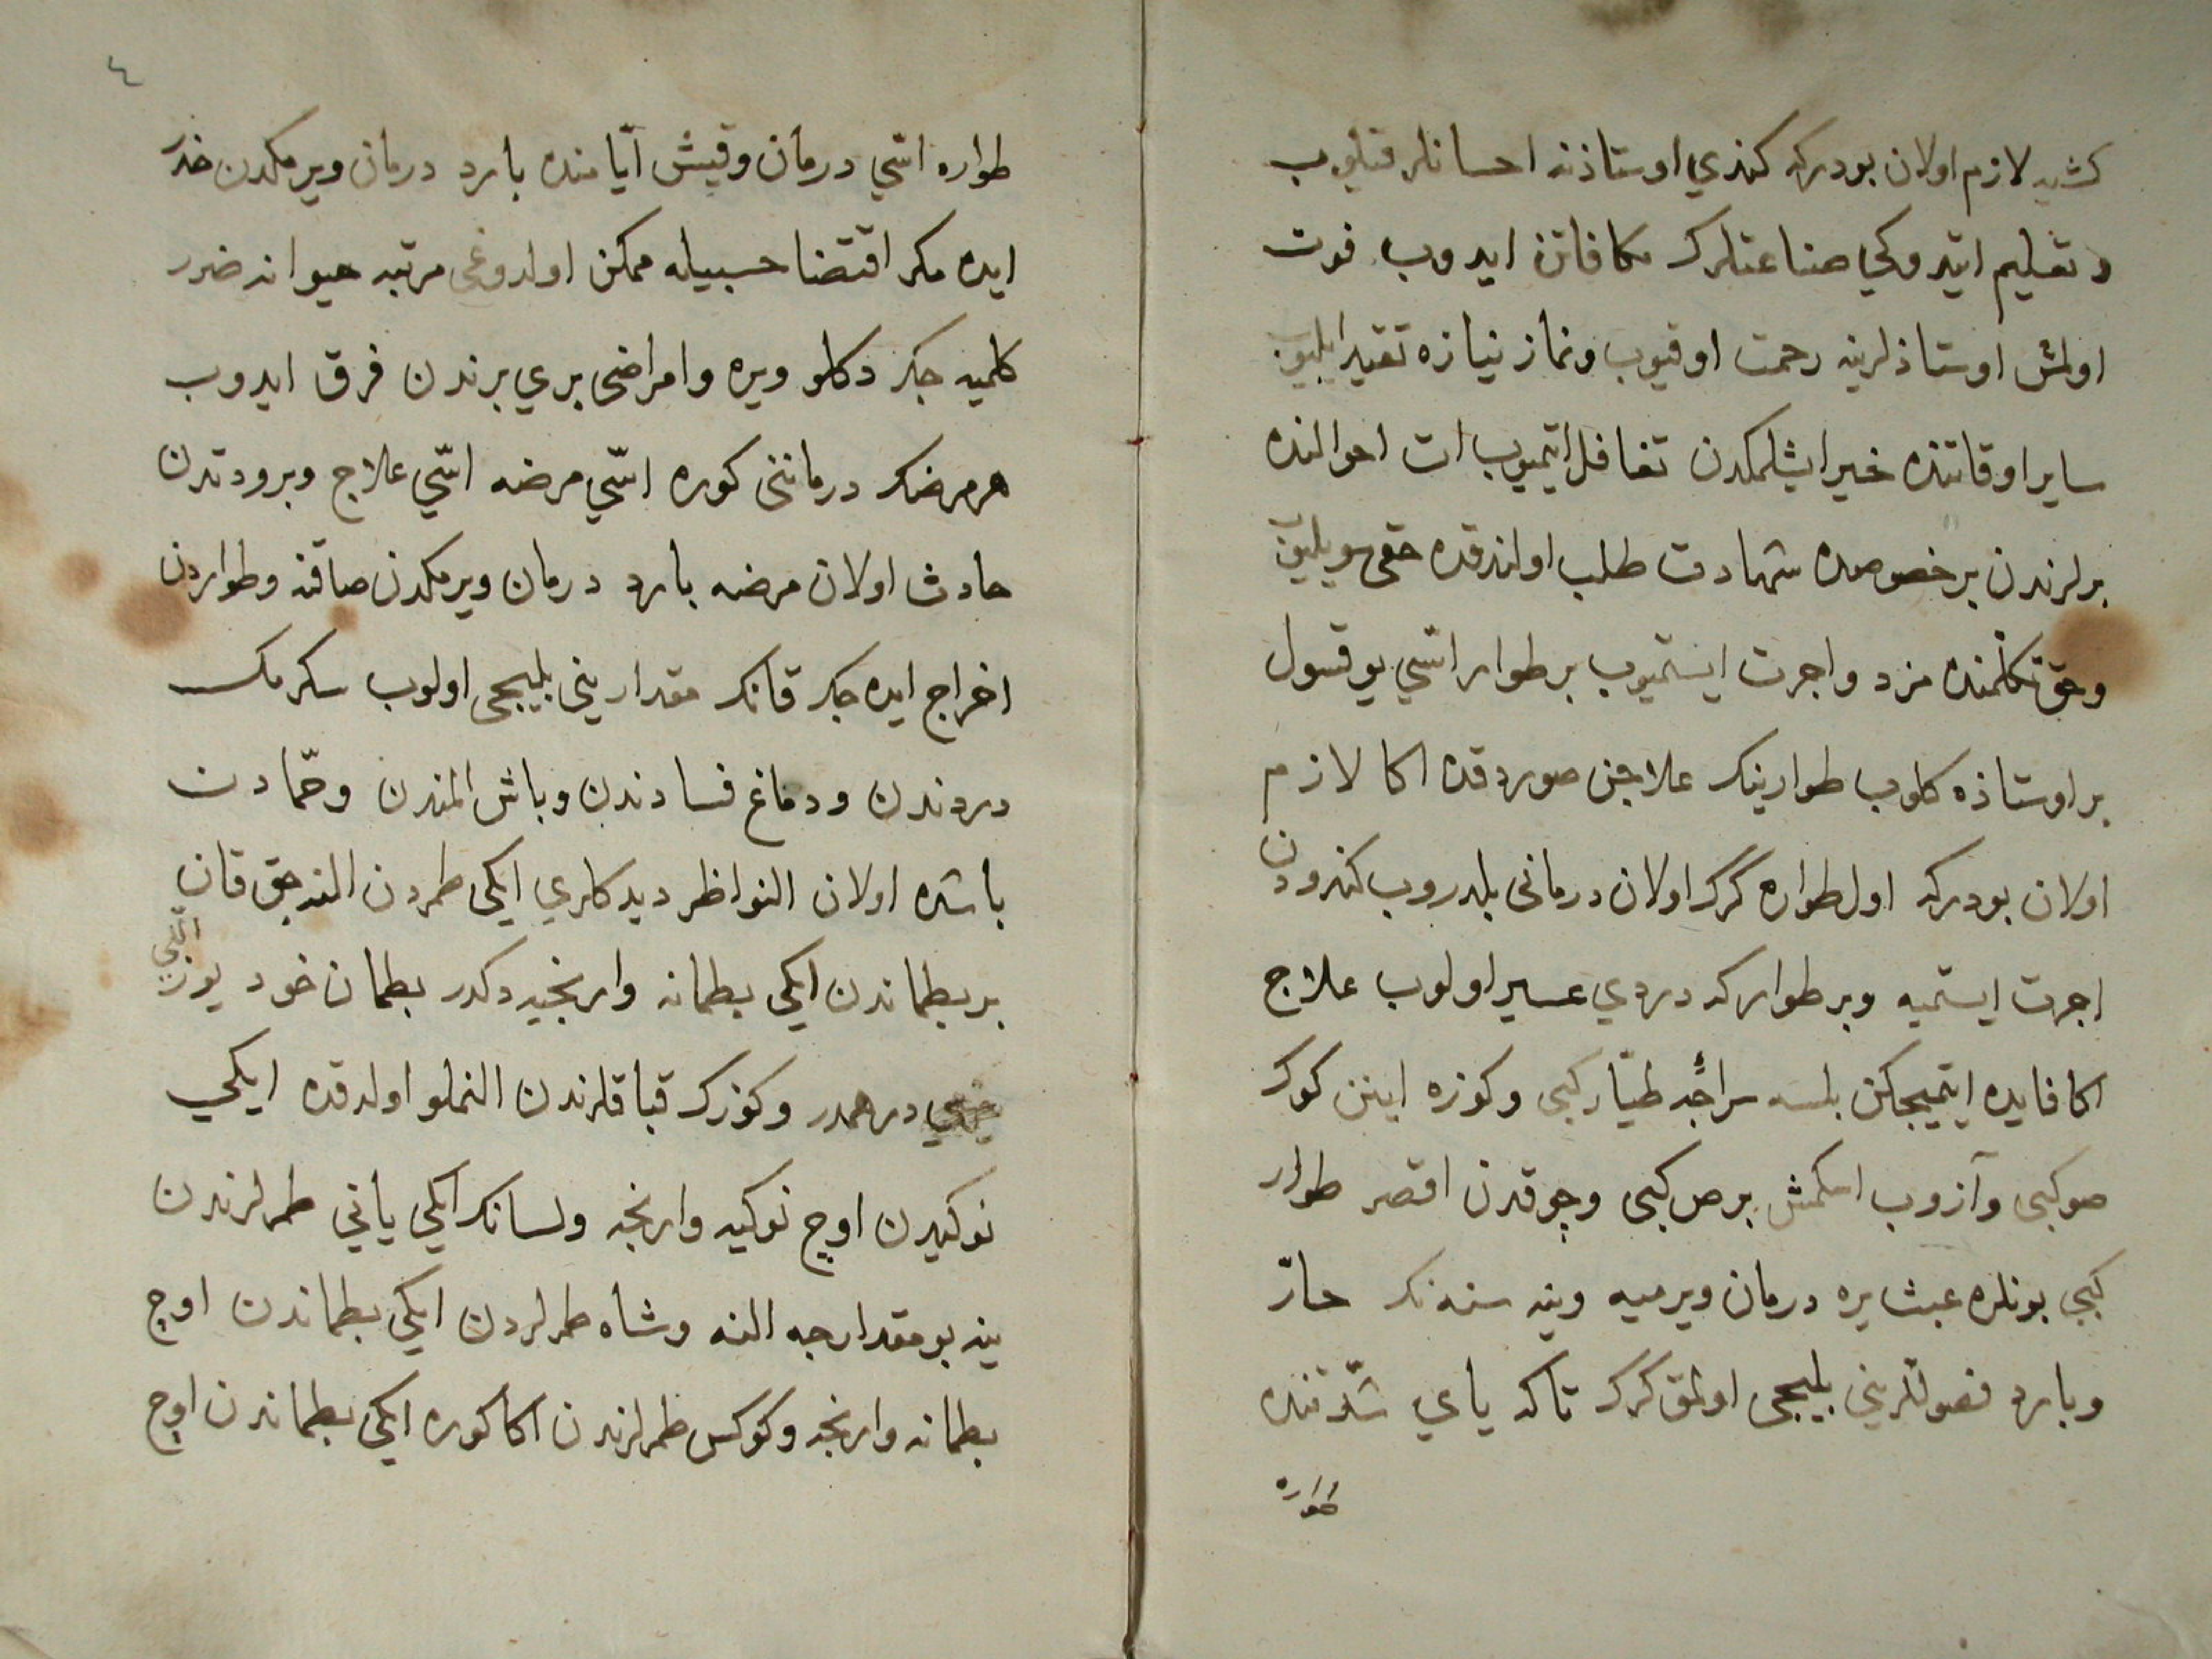 كشيه لازم اولان بودركه كندي اوستاذنه احسانلر قيلوب
و تعليم ايتدوكي صناعتلرك مكافاتن ايدوب فوت
اولمش اوستاذلرينه رحمت اوقيوب ونماز نيازه تقيد ايليوب
ساير اوقاتنده خير ايشلمكدن تغافل ايتميوب ات احوالنده
برلرندن بر خصوصده شهادت طلب اولندقده حقي سويليوب
وحق تكلمنده مزد واجرت ايستميوب بر طوار اسّي يوقسول
بر اوستاذه كلوب طوارينك علاجن صوردقده اكا لازم
اولان بودركه اول طواره كرك اولان درماني بلدروب كندودن
اجرت ايستميه وبر طوارك دردي عسير اولوب علاج
اكا فايده ايتميجكن بلسه سراجه طيّار كبي وكوزه اينن كوك
صو كبي وآزوب اسكمش برص كبي وچوقدن اقصر طوار
كبي بونلره عبث يره درمان ويرميه وينه سنه نك حارّ
وبارد فصوللريني بليجي اولمق كرك تاكه ياي شدّتنده
طواره
٤
طواره اسّي درمان وقيش ايّامنده بارد درمان ويرمكدن حذر
ايده مكر اقتضا حسبيله ممكن اولدوغي مرتبه حيوانه ضرر
كلميه جك دكلو ويره وامراضي بري برندن فرق ايدوب
هر مرضك درمانني كوره اسّي مرضه اسّي علاج وبرودتدن
حادث اولان مرضه بارد درمان ويرمكدن صاقنه وطواردن
اخراج ايده جك قانك مقداريني بليجي اولوب سكرمك
دردندن ودماغ فسادندن وباش المندن وحمّادن
باشده اولان النواظر ديدكلري ايكي طمردن النه جق قان
بر بطماندن ايكي بطمانه وارنجيه دكدر بطمان خود يوز التمي
درهمدر وكوزك قباقلرندن النملو اولدقده ايكي
نوكيدن اوچ نوكيه وارنجه ولسانك ايكي ياني طمرلرندن
ينه بو مقدارجه النه وشاه طمرلردن ايكي بطماندن اوچ
بطمانه وارنجه وكوكس طمرلرندن اكا كوره ايكي بطماندن اوچ